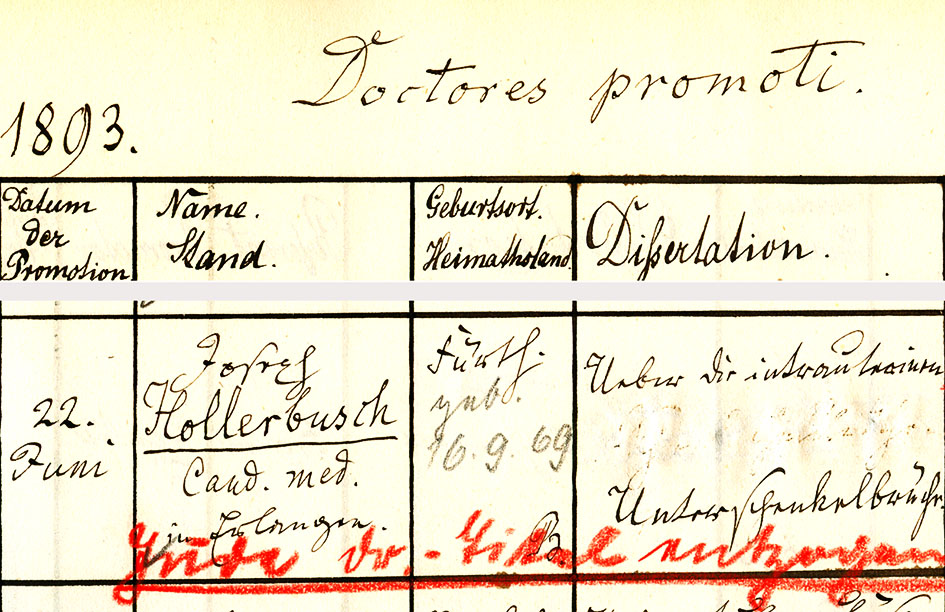 Doctores promoti.
1893.
Datum
der
Promotion
Name.
Stand.
Geburtsort.
Heimathsland
Dißertation.
22.
Juni
Joseph
Hollerbusch
Cand. med.
in Erlangen.
Fürth.
geb.
16.9.69
B
Ueber die intrauterinen
Unterschenkelbrüche
Jude Dr.-Titel entzogen